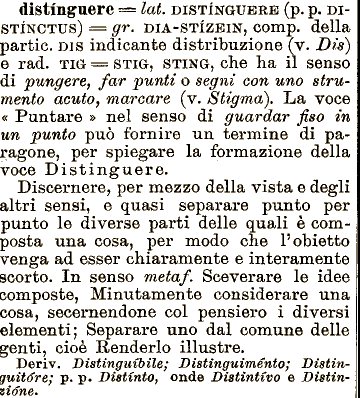 distínguere = lat. DISTÍNGUERE (p. p. DI-
STÍNCTUS) = gr. DIA-STÍZEIN, comp. della
partic. DIS indicante distribuzione (v. Dis)
e rad. TIG = STIG, STING, che ha il senso
di pungere, far punti o segni con uno stru-
mento acuto, marcare (v. Stigma). La voce
« Puntare » nel senso di guardar fiso in
un punto può fornire un termine di pa-
ragone, per spiegare la formazione della
voce Distinguere.
Discernere, per mezzo della vista e degli
altri sensi, e quasi separare punto per
punto le diverse parti delle quali è com-
posta una cosa, per modo che l'obietto
venga ad esser chiaramente e interamente
scorto. In senso metaf. Sceverare le idee
composte, Minutamente considerare una
cosa, secernendone col pensiero i diversi
elementi; Separare uno dal comune delle
genti, cioè Renderlo illustre.
Deriv. Distinguíbile; Distinguiménto; Distin-
guitóre; p. p. Distínto, onde Distintívo e Distin-
zióne.